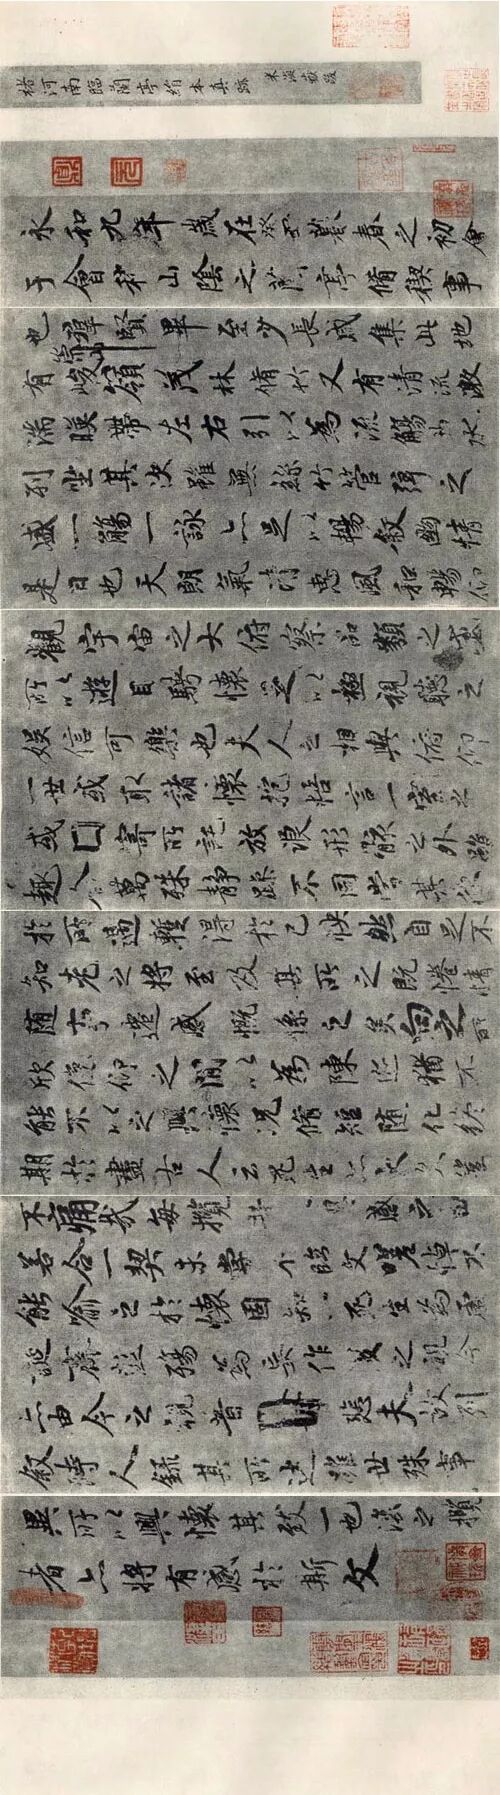 褚河南臨蘭亭絹本真跡 米海岳跋
永和九年歲在癸丑暮春之初會
于會稽山陰之蘭亭脩稧事
也群賢畢至少長咸集此地
有崇山峻嶺茂林脩竹又有清流激
湍暎帶左右引以為流觴曲水
列坐其次雖無絲竹管弦之
盛一觴一詠亦足以暢敘幽情
是日也天朗氣清惠風和暢仰
觀宇宙之大俯察品類之盛
所以遊目騁懷足以極視聽之
娛信可樂也夫人之相與俯仰
一世或取諸懷抱悟言一室之
或因寄所託放浪形骸之外雖
趣舍萬殊靜躁不同當其欣
於所遇暫得於己怏然自足不
知老之將至及其所之既惓情
隨事遷感慨係之矣向之所
欣俛仰之閒以為陳迹猶不
能不以之興懷況脩短隨化終
期於盡古人云死生亦大矣豈
不痛哉每攬昔感之由
若合一契未嘗不臨文嗟悼不
能喻之於懷固知一死生為虛
誕齊彭殤為妄作後之視今
亦由今之視昔悲夫故列
敘時人錄其所述雖世殊事
異所以興懷其致一也後之攬
者亦將有感於斯文